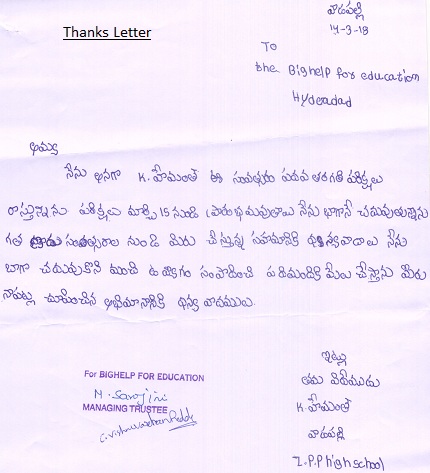 వాడపల్లి
14-3-18
Thanks Letter
To
the Bighelp for education
Hyderadad
అమ్మ
నేను అనగా K. హేమంత్ ఈ సంవత్సరం పదవ తరగతి పరీక్షలు
రాస్తున్నాను పరీక్షలు మార్చి 15 నుండి ప్రారంభమవుతాయి నేను బాగానే చదువుతున్నాను
గత సంవత్సరాల నుండి మీరు చేస్తున్న సహాయానికి ధన్యవాదాలు నేను
బాగా చదువుకొని మంచి ఉద్యోగం సంపాదించి పదిమందికి మేలు చేస్తాను మీరు
నాపట్ల చూపించిన అభిమానానికి ధన్యవాదములు.
ఇట్లు
తమ విధేయుడు
K. హేమంత్
వాడపల్లి
Z.P.P high school
For BIGHELP FOR EDUCATION
N. Sarojini
MANAGING TRUSTEE
C. Vishnuvardhan Reddy